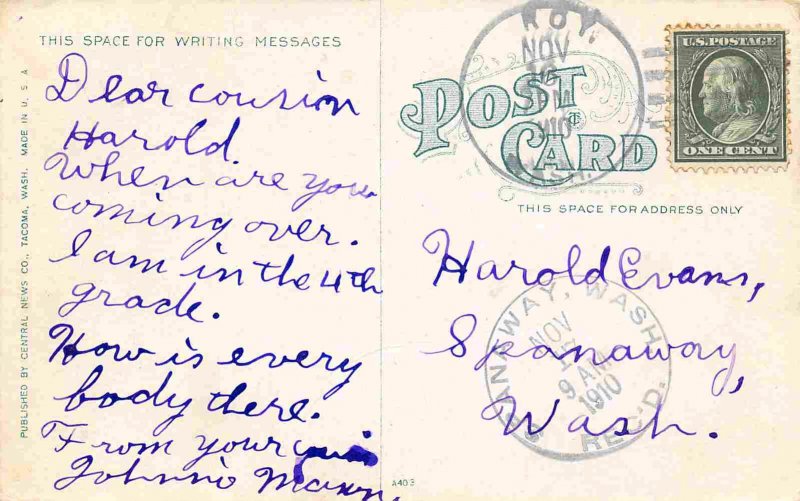 THIS SPACE FOR WRITING MESSAGES
Dear cousin
Harold
When are you
coming over.
I am in the 4th
grade.
How is every
body there.
From your
Johnnie
PUBLISHED BY CENTRAL NEWS CO., TACOMA, WASH. MADE IN U.S.A
POST CARD
ROY.
NOV
PM
1910
WASH.
U.S. POSTAGE
ONE CENT
THIS SPACE FOR ADDRESS ONLY
Harold Evans,
Spanaway,
Wash.
SPANAWAY, WASH.
NOV
9 AM
1910
REC'D.
A403